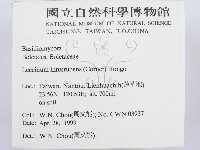 國立自然科學博物館
NATIONAL MUSEUM OF NATURAL SCIENCE
TAICHUNG, TAIWAN, R.O.CHINA
Basidiomycota
Boletales, Boletaceae
Leccinum intusrubens (Corner) Hongo
Loc.: Taiwan, Nantou, Lienhuachih(蓮華池)
23.56N, 120.53E, alt. 700m
on soil
Col.: W.N. Chou(周文能); No. CWN 03927
Date: Apr. 28, 1999
Det.: W.N. Chou(周文能)